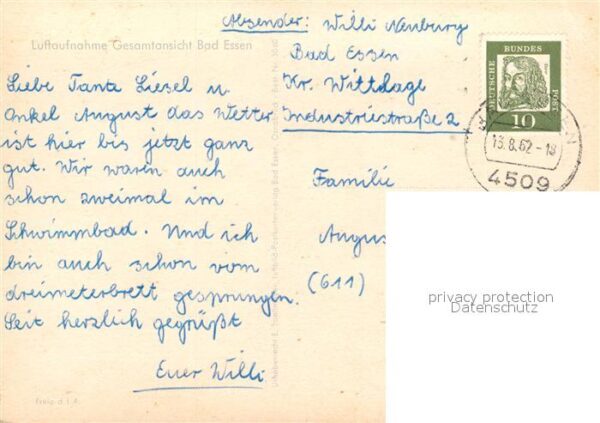 Absender: Willi Neuburg
Bad Essen
Kr. Wittlage
Industriestraße 2
Luftaufnahme Gesamtansicht Bad Essen
Liebe Tante Liesel u
Onkel August das Wetter
ist hier bis jetzt ganz
gut. Wir waren auch
schon zweimal im
Schwimmbad. Und ich
bin auch schon vom
dreimeterbrett gesprungen.
Seit herzlich gegrüßt
Euer Willi
DEUTSCHE BUNDESPOST
10
13.8.62-18
4509
Familie
Augus
(611)
privacy protection
Datenschutz